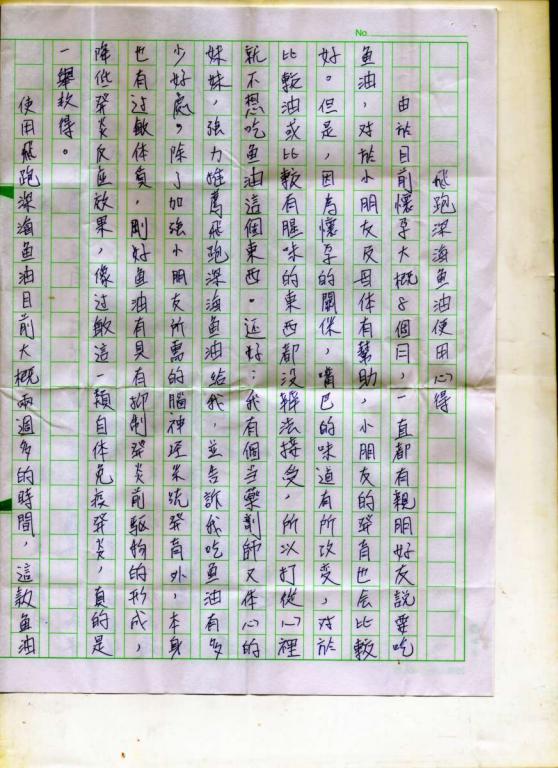 No.
飛跑深海魚油使用心得
由於目前懷孕大概8個月,一直都有親朋好友說要吃
魚油,对於小朋友及母体有幫助,小朋友的発育也会比較
好。但是,因為懷孕的關係,嘴巴的味道有所改変,对於
比較油或比較有腥味的東西都没辦法接受,所以打從心裡
就不想吃魚油這個東西。还好;我有個当藥劑師又体心的
妹妹,強力推薦飛跑深海魚油給我,並告訴我吃魚油有多
少好處。除了加強小朋友所需的腦神経系統発育外,本身
也有过敏体質,剛好魚油有具有抑制発炎前驅物的形成,
降低発炎反应效果,像过敏這一類自体免疫発炎,真的是
一舉数得。
使用飛跑深海魚油目前大概兩週多的時間,這款魚油